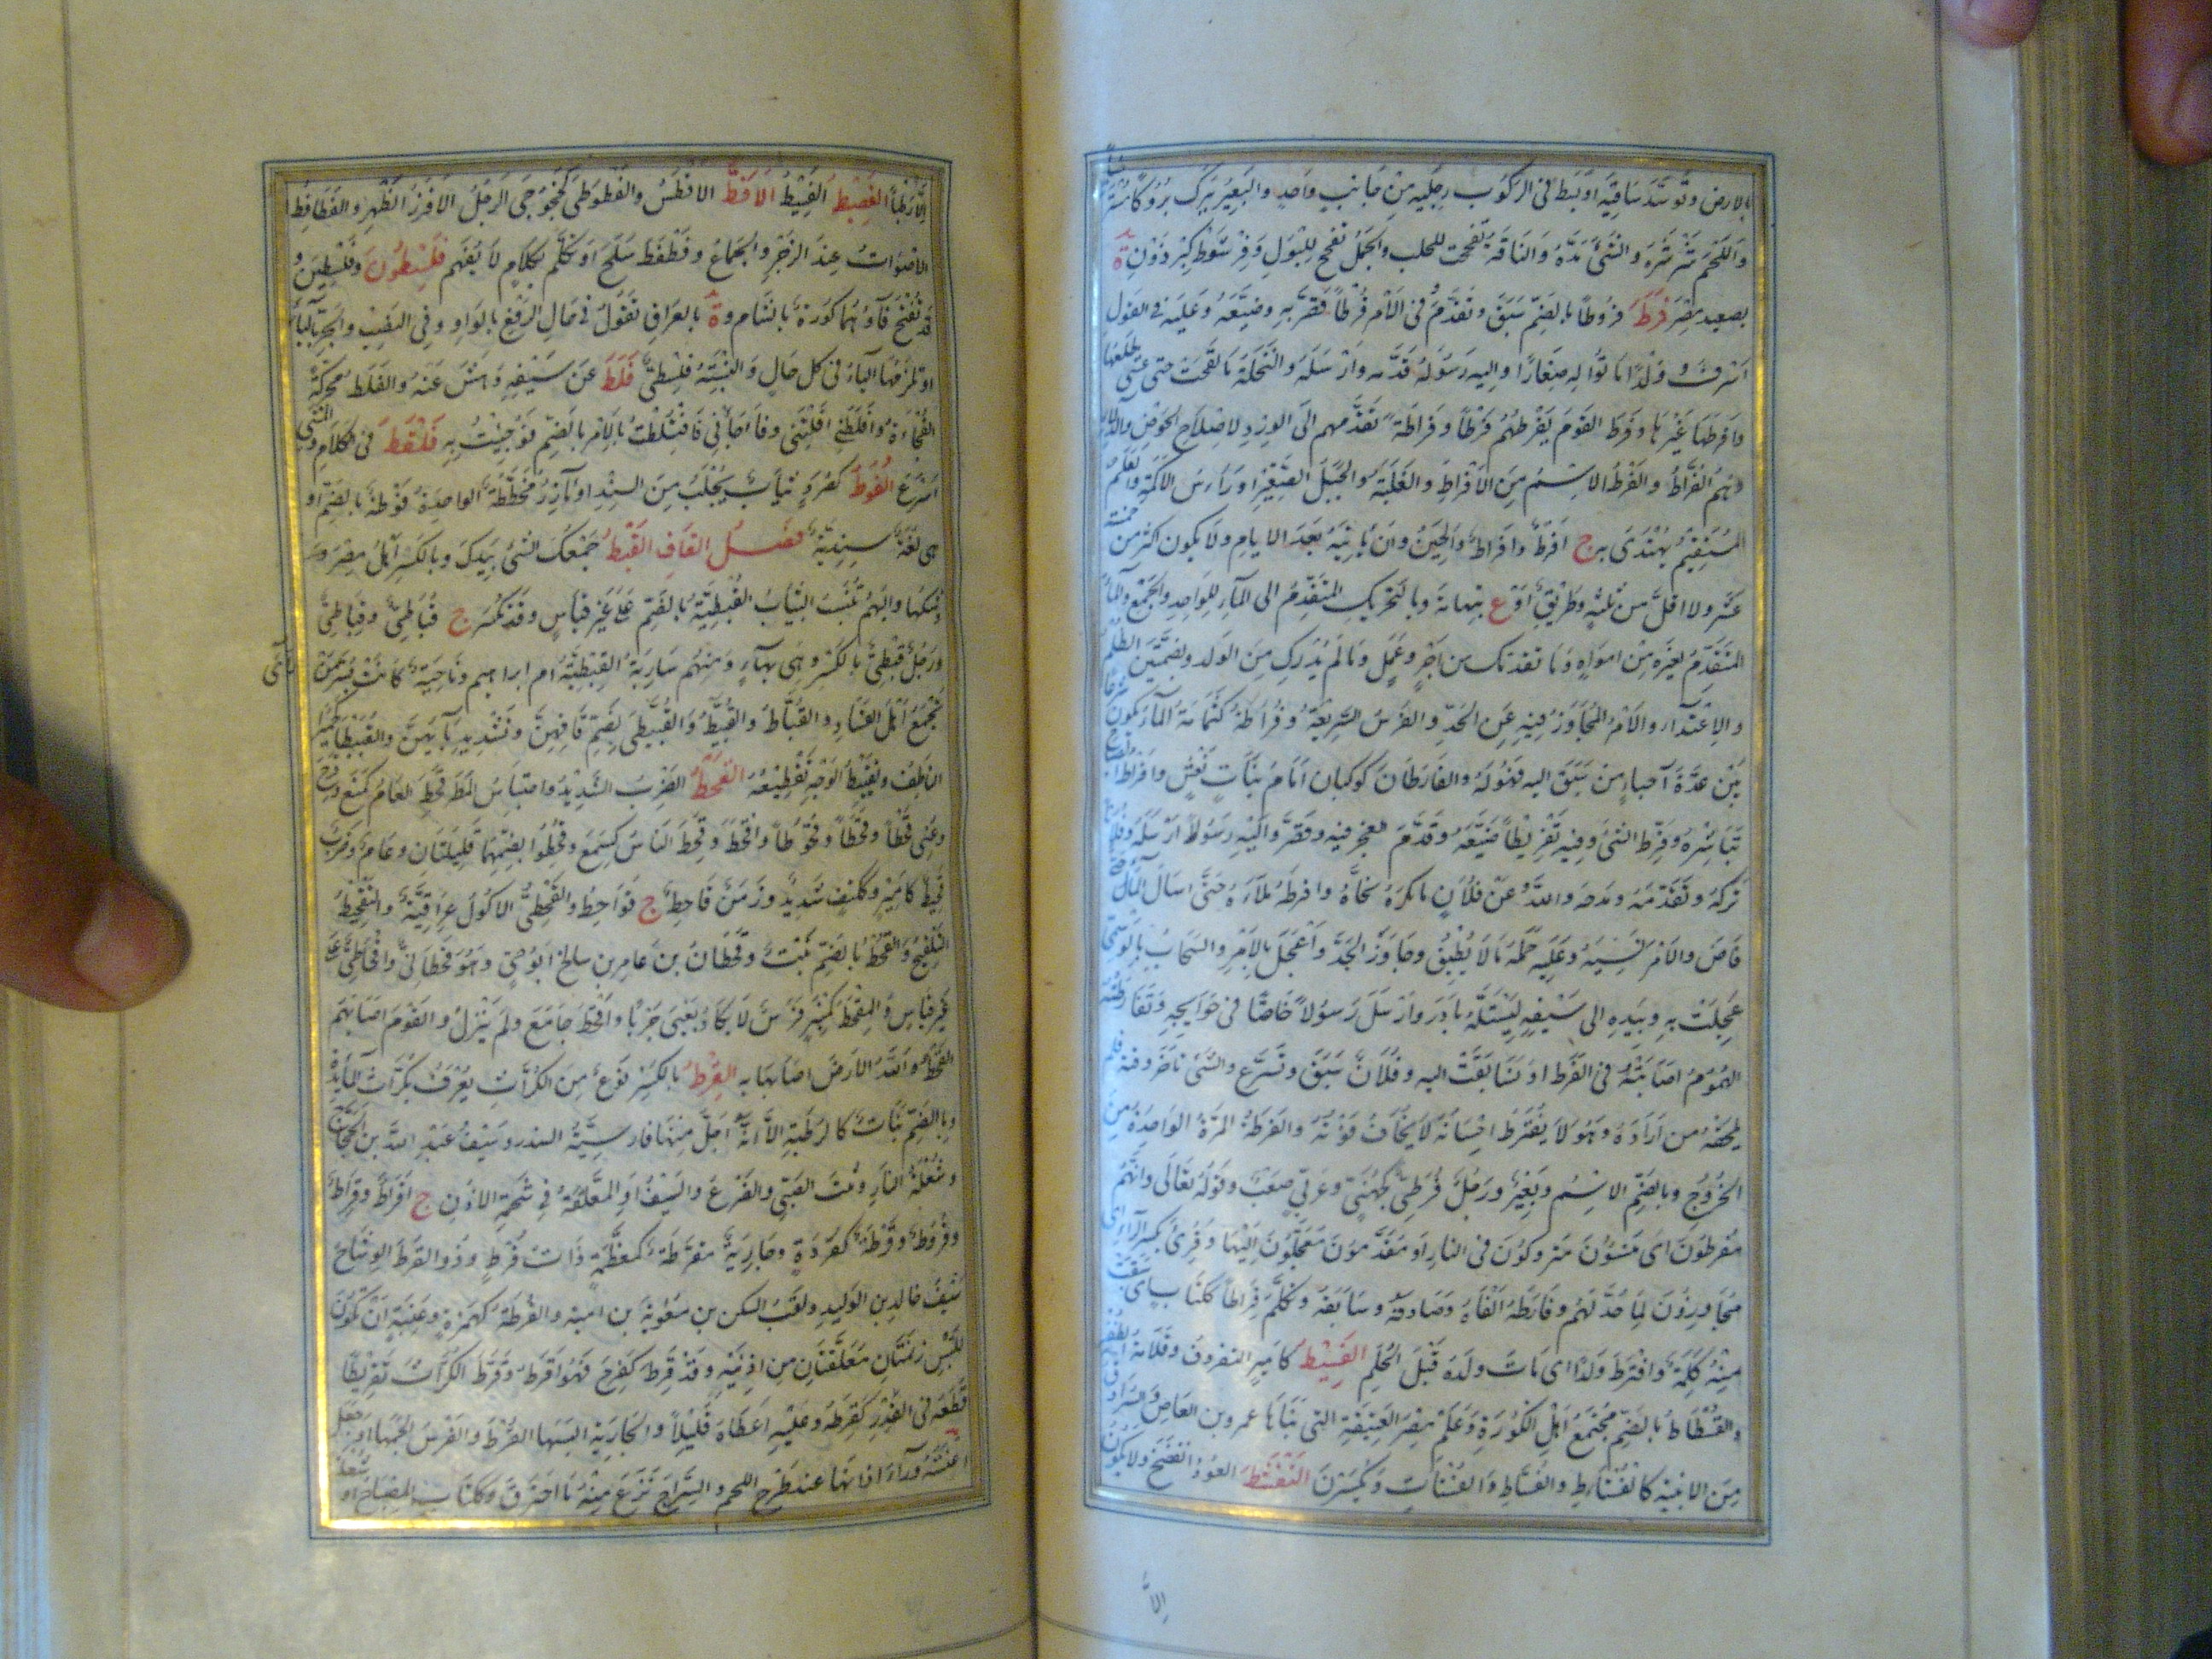 بالارض وتوسَّدَ سَاقَيْهِ اوبَسَطَ فى الركُوب رِجْلَيْه مِنْ جَانِبٍ وَاحِدٍ والبَعِيرُ بَرَكَ بُرُوكًا
واللَّحْمَ شَرْشَرَهُ والشَّىْءَ مَدَّهُ وَالنَّاقَةُ تَفَحَّجَت للحلب والجَمَلُ تَفَحَّجَ لِلْبَوْلِ وَفِرْشَوْطُ كَبِرْذَوْنٍ ة
بصعيد مِصْرَ فَرَطَ فروُطًا بالضَّمِّ سَبَقَ وتَقَدَّمَ وفى الاَمْرِ فَرْطًا قَصَّرَ بِهِ وضَيَّعَهُ وعَلَيْهِ فى القول
اَسْرَفَ و وَلَدًا مَاتُوا له صِغَارًا واليه رَسُولَهُ قَدَّمه وارْسَلَهُ والنَّخْلَةُ مَا لقحَت حتى عَسَى طَلْعُهَا
وَافرَطَهَا غَيْرهَا وفَرَطَ القَومَ يَفْرِطُهُم فَرْطًا وفَرَاطَةً تقدَّمهم الى الوِرْدِ لاصْلاَحِ الحَوْضِ والدِّلاَء
وهُم الفُرَّاطُ والفَرْطُ الاِسْمُ مِنَ الاَفْرَاطِ والغَلَبَةُ والجَبَلُ الصَّغِيرُ اورَاْسُ الاَكَمَةِ والعَلَمُ
المُسْتَقِيمُ يُهْتَدَى بِهِ ج افْرُطٌ وافْرَاطٌ والحِينُ وان يَاْتِيَهُ بَعْدَ الايام ولا يكون اكثر من خمسة
عَشَر ولا اقلَّ من ثَلَثَةٍ وطَرِيقٌ اوْ ع بتهامة وبالتحريك المتقَدِّمُ الى المَآءِ لِلْواحِدِ والجَمْعِ والمَآءُ
المتَقَدِّمُ لغيره مِنْ امواهٍ ومَا تقدمك من اَجْرٍ وعَمَلٍ ومَا لَمْ يُدْرِكْ مِنَ الوَلَد وبضَمَّتَيْنِ الظُّلْمُ
والاِعْتِدآء والاَمْرُ المُجَاوَزُ فِيهِ عَنِ الحَدِّ والفَرَسُ السَّرِيعَةُ وفُرَاطَةٌ كثُمَامَةٍ المَآءُ يَكُونُ
بَيْنَ عِدَّةِ اَحياءٍ مَنْ سَبَقَ اليه فَهُوَ لَهُ والفَارِطَانِ كوكبان اَمَامَ بَنَاتِ نَعْشٍ وافْراطُ
تَبَاشِيرُهُ وفَرَّطَ الشَّىْءَ وفِيهِ تَفْرِيطًا ضَيَّعَهُ وقَدَّمَ العجز فيه وقَصَّرَ والَيْهِ رَسُولاً ارْسَلَهُ وفُلاَنًا
تَرَكَهُ وتَقَدَّمَهُ ومَدَحَه واللهُ عَنْ فُلاَنٍ مايكرَهُ نَحَّاهُ وافرَطَهُ مَلأَهُ حَتَّى اسَالَ المَآءَ
فَاضَ والاَمْرَ نَسِيَهُ وعَلَيْه حَمَّلَهُ مَا لاَ يُطِيقُ وجَاوَزَ الحَدَّ واَعْجَلَ بالاَمْرِ والسَّحَابُ بالوَسْمِى
عَجِلَتْ بِهِ وبِيَدِهِ الى سَيْفِهِ لِيَسْتَلَّهُ بَادَرَ وارْسَلَ رَسُولاً خَاصًّا فى حَوَايجِهِ وتَفَارَطَتْهُ
الهُمُومُ اصَابَتْهُ فى الفَرْطِ او تَسَابَقَتْ اليه وفُلاَنٌ سَبَقَ وتَسَرَّعَ والشَّىءُ تَاخَّرَ وقته فلم
يلحَقْهُ من اَرَادَهُ وهُوَ لاَ يُفْتَرَطُ احْسَانُهُ لاَ يُخَافُ فَوْتُهُ والفَرْطَةُ المرَّةُ الواحِدَةُ مِنَ
الخُرُوجِ وبالضَّمِّ الاِسْم وبَعِيرٌ ورَجُلٌ فُرُطِىٌّ كجُهَنِىٍّ وعَرَبِىٍّ صَعْبٌ وقَوْلُهُ تَعَالَى واَنَّهُمْ
مُفْرَطُونَ اى مَنْسِيُّونَ مَتْرُوكُونَ فى النارِ اَو مُقَدَّمُونَ مُعَجَّلُونَ اِلَيْهَا وقُرِئَ بكسر الرَّآء اى
مُجَاوِزُونَ لِمَا حُدَّ لَهُمْ وفَارَطَهُ اَلْفَاهُ وصَادفهُ وسَابَقَهُ وتكلَّمَ فِرَاطًا ككتَابٍ اى سَبَقَتْ
مِنْهُ كَلِمَةٌ وافْتَرَطَ وَلَدًا اى مَاتَ ولَدُهُ قَبْلَ الحُلُمِ الفَسِيطُ كَامِيرٍ الثفروق وقُلاَمَةُ الظُّفُر
والفُسْطَاطُ بالضَّمِّ مُجْتَمَعُ اَهْلِ الكُورَةِ وعَلَمُ مِصْرَ العَتِيقَةِ التى بَنَاهَا عمرو بن العَاص والسُّرَادِقُ
مِنَ الابنية كالفُسْتَاطِ والفُسَّاطِ والفُسْتَاتِ ويُكْسَرْنَ انْفَشَطَ العُودُ انْفَضَخَ ولا يَكُونُ
اِلاَّ
اِلاَّ رَطْبًا الفَضِيطُ الفَسِيطُ الاَفَطُّ الافْطَسُ والفَطَوْطَى كخَجَوْجَى الرجُلُ الاَفْزَرُ الظَّهْرِ والفَطَافِطُ
الاَصْوَاتُ عِنْدَ الزَّجْرِ والجِمَاع وفَطْفَطَ سَلَحَ او تَكَلَّمَ بكَلاَمٍ لاَ يُفْهَمُ فَلَسْطُونَ وفِلَسْطِينَ و
قد تُفْتَحُ فَآؤُهُما كُورَةٌ بالشَّامِ وة بالعِرَاقِ تَقُولُ فى حَالِ الرَّفْعِ بالوَاوِ وفى النَصْبِ والجَرِّ باليَآءِ
اوتُلْزِمُها اليَآءَ فى كل حَالٍ والنِّسْبَةُ فِلَسْطِىٌّ فَلَطَ عَن سَيْفِهِ دَهِشَ عَنْهُ والفَلَطُ محرَّكَةً
الفُجَاءَةُ وافلَطَنِى افْلَتَنِى وفاجَاَنِى فَافْتُلِطْتُ بالاَمْرِ بالضَّمِّ فُوجِئْتُ بِهِ فَلْقَطَ فى الكلاَمِ والمَشْى
اَسْرَعَ الفُوَطُ كصُرَدٍ ثِيَابٌ يُجْلَبُ مِنَ السِّنْدِ او مَآزِرُ مُخَطَّطَةٌ الواحِدَةُ فُوطَةٌ بالضَمِّ او
هى لُغَةٌ سِنْدِيَّةٌ فَصْلُ القَافِ القَبْطُ جَمْعُكَ الشَّىْءَ بِيَدِكَ وبالكسْرِ اَهْلُ مِصْرَ و
بُنْكُهَا والَيْهِمُ تُنْسَبُ الثِّيَابُ القُبْطِيَّةُ بالضَّمِّ عَلَى غَيْرِ قِيَاسٍ وقَدْ تُكْسَرُ ج قُبَاطِىٌّ وقَبَاطِىُّ
ورَجُلٌ قِبْطِىٌّ بالكَسْرِ وهى بهَآءٍ ومِنْهُم مَارِيَةُ القِبْطِيَّةُ ام ابراهيم ونَاحِيَةٌ كَانَتْ بِسُرَّمَنْ رَأَى
تَجْمَعُ اَهْلَ الفَسَادِ والقُبَّاطُ والقُبَّيْطُ والقُبَّيْطَى بِضَمِّ قَافِهِنَّ وتَشْدِيدِ بَآئِهِنَّ والقُبَيْطَاءُ
النَاطِفُ وتَقْبِيطُ الوَجْهِ تَقْطِيبُهُ القَحْطُ الضَّرْبُ الشَّدِيدُ واحْتِبَاسُ المَطَرِ قَحَطَ العَامُ كمَنَعَ وفَرِحَ
وعُنِى قَحْطًا وقَحَطًا وقُحُوطًا واَقْحَطَ وقَحِطَ النَّاسُ كسَمِعَ وقُحِطُوا بضَمِّهِما قَلِيلَتَانِ وعَامٌ وضَرْبٌ
قَحِيطٌ كامِيرٍ وكَكَتِفٍ شَدِيدٌ وزَمَنٌ قَاحِطٌ ج قَوَاحِطُ والقَحْطِىُّ الاكُولُ عِرَاقِيَّةٌ والتَّقْحِيطُ
التَّلْقِيحُ والقُحْطُ بالضَّمِّ نَبْتٌ وقَحْطَانُ بن عَامِرِ بن سالخ ابُوحَىٍّ وهُوَ قَحْطَانِىٌّ واَقْحَاطِىٌّ على
غَيْرِ قِيَاسٍ والمِقْحَطُ كمِنْبَرٍ فَرَسٌ لاَ يَكَادُ يَعْيَى جَرْيًا واَقْحَطَ جَامَعَ ولَمْ يُنْزِلْ والقَوْمُ اصَابَهُم
القَحْطُ واللهُ الاَرْضَ اصَابَهَا به القِرْطُ بالكَسْرِ نَوْعٌ مِنَ الكُرَّاثِ يُعْرَفُ بكُرَّاثِ المَائِدَةِ
وبالضَّمِّ نَبَاتٌ كالرَّطْبَةِ اِلاَّ انَّهُ اَجَلُّ مِنْهَا فارسيَّتُهُ الشبذر وسَيْفُ عَبْدِ اللهِ بن الحجَّاجِ
وشُعْلَةُ النارِ و الصَّبِىِّ والضَّرْعُ والشَّنْفُ اَوِ المُعَلَّقَةُ فى شَحْمَةِ الاذُنِ ج اقْرَاطٌ وقِرَاطٌ
وقُرُوطٌ وقِرَطَةٌ كقِرَدَةٍ وجَارِيَةٌ مُقَرَّطَةٌ كمُعَظَّمَةٍ ذَاتُ قُرْطٍ وذُو القُرْطِ الوِشَاحُ
سَيْفُ خالدِ بن الوَليدِ ولَقَبُ السكن بن مُعَوِيَةَ بن اميه والقُرَطَةُ كهُمَزَةٍ وعِنَبَةٍ اَنْ يَكُونَ
للتَّيْسِ زَنَمَتَانِ مُعَلَّقَتَانِ من اذنَيْهِ وقَدْ قَرِطَ كفَرِحَ فَهُوَ اَقْرَطُ وقَرَّطَ الكُرَّاثَ تَقْرِيطًا
قَطَّعَهُ فى القِدْرِ كقَرَطَهُ وعَلَيْهِ اعْطَاهُ قَلِيلاً والجَارِيَةَ الْبَسَها القُرْطَ والفَرَسَ الْجَمَهَا او جَعَلَ
اعِنَّتَهُ ورَآءَ اذانهَا عندَ طَرْحِ اللجم والسِّرَاجَ نَزَعَ مِنْهُ مَا احْتَرَقَ وككتَابٍ المِصْبَاحُ او